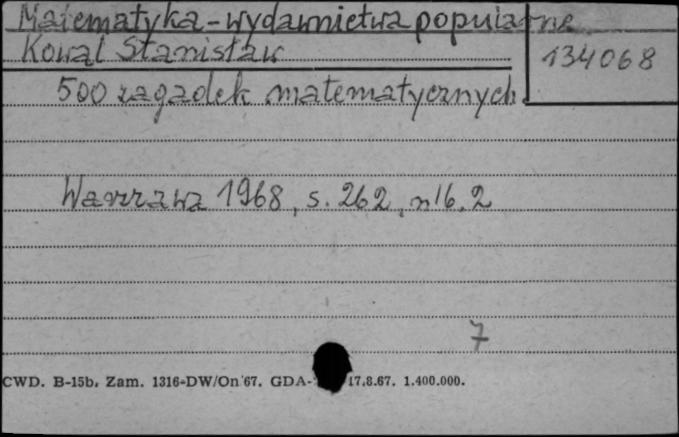 Matematyka-wydawnictwa popularne
Kowal Stanisław
134068
500 zagadek matematycznych.
Warszawa 1968, s. 262,
7
CWD. B-15b. Zam. 1316-DW/On 67. GDA- 17.8.67. 1.400.000.